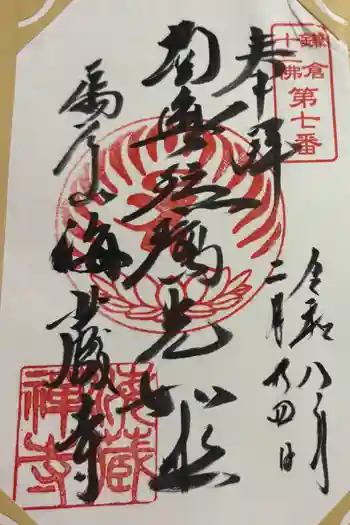 鎌倉
十三佛
第七番
奉拝
南無瑠璃光如来
扇谷山
海蔵寺
令和八年
二月廿四日
海藏
禅寺